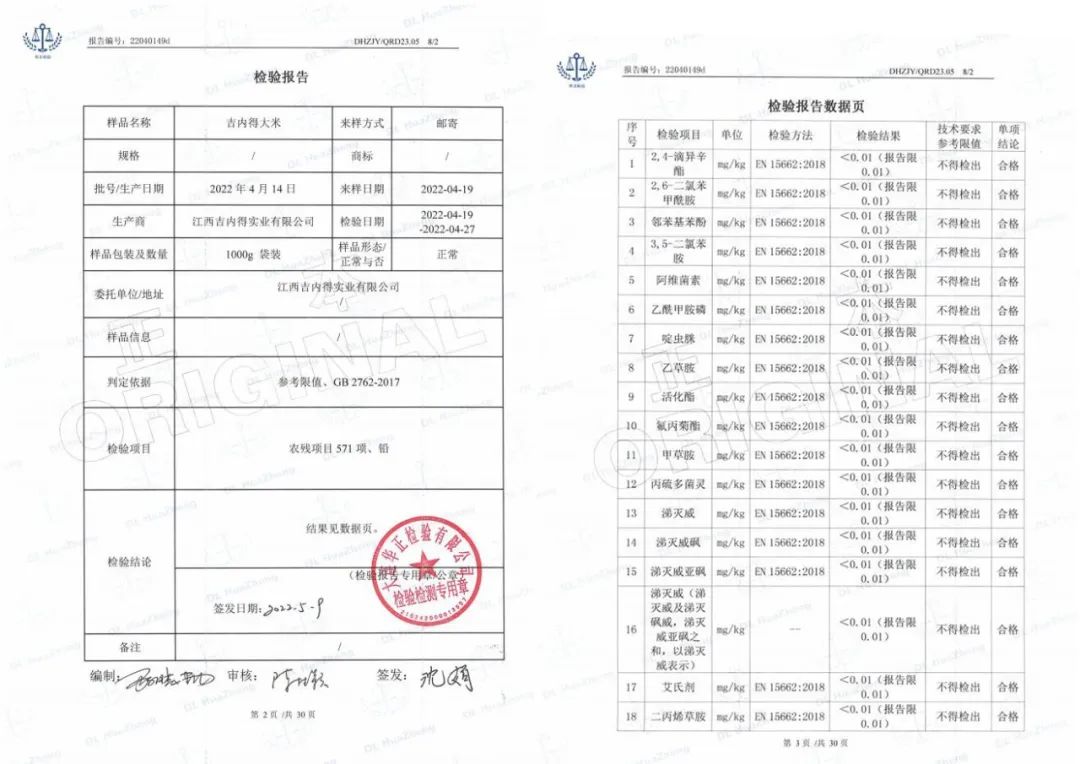 报告编号：22040149d DHZJY/QRD23.05 8/2
检验报告
样品名称 吉内得大米 来样方式 邮寄
规格 / 商标 /
批号/生产日期 2022 年 4 月 14 日 来样日期 2022-04-19
生产商 江西吉内得实业有限公司 检验日期 2022-04-19
-2022-04-27
样品包装及数量 1000g 袋装 样品形态/
正常与否 正常
委托单位/地址 江西吉内得实业有限公司
/
样品信息 /
判定依据 参考限值、GB 2762-2017
检验项目 农残项目 571 项、铅
检验结论 结果见数据页。
（检验报告专用章/公章）
签发日期：2022-5-9
华正检验有限公司
检验检测专用章
备注 /
编制： 审核： 签发：
第 2 页 /共 30 页
正本
ORIGINAL
报告编号：22040149d DHZJY/QRD23.05 8/2
检验报告数据页
序号 检验项目 单位 检验方法 检验结果 技术要求参考限值 单项结论
1 2,4-滴异辛酯 mg/kg EN 15662:2018 <0.01（报告限0.01） 不得检出 合格
2 2,6-二氯苯甲酰胺 mg/kg EN 15662:2018 <0.01（报告限0.01） 不得检出 合格
3 邻苯基苯酚 mg/kg EN 15662:2018 <0.01（报告限0.01） 不得检出 合格
4 3,5-二氯苯胺 mg/kg EN 15662:2018 <0.01（报告限0.01） 不得检出 合格
5 阿维菌素 mg/kg EN 15662:2018 <0.01（报告限0.01） 不得检出 合格
6 乙酰甲胺磷 mg/kg EN 15662:2018 <0.01（报告限0.01） 不得检出 合格
7 啶虫脒 mg/kg EN 15662:2018 <0.01（报告限0.01） 不得检出 合格
8 乙草胺 mg/kg EN 15662:2018 <0.01（报告限0.01） 不得检出 合格
9 活化酯 mg/kg EN 15662:2018 <0.01（报告限0.01） 不得检出 合格
10 氟丙菊酯 mg/kg EN 15662:2018 <0.01（报告限0.01） 不得检出 合格
11 甲草胺 mg/kg EN 15662:2018 <0.01（报告限0.01） 不得检出 合格
12 丙硫多菌灵 mg/kg EN 15662:2018 <0.01（报告限0.01） 不得检出 合格
13 涕灭威 mg/kg EN 15662:2018 <0.01（报告限0.01） 不得检出 合格
14 涕灭威砜 mg/kg EN 15662:2018 <0.01（报告限0.01） 不得检出 合格
15 涕灭威亚砜 mg/kg EN 15662:2018 <0.01（报告限0.01） 不得检出 合格
16 涕灭威（涕灭威及涕灭砜威，涕灭威亚砜之和，以涕灭威表示） mg/kg -- <0.01（报告限0.01） 不得检出 合格
17 艾氏剂 mg/kg EN 15662:2018 <0.01（报告限0.01） 不得检出 合格
18 二丙烯草胺 mg/kg EN 15662:2018 <0.01（报告限0.01） 不得检出 合格
第 3 页 /共 30 页
正
ORIGINAL